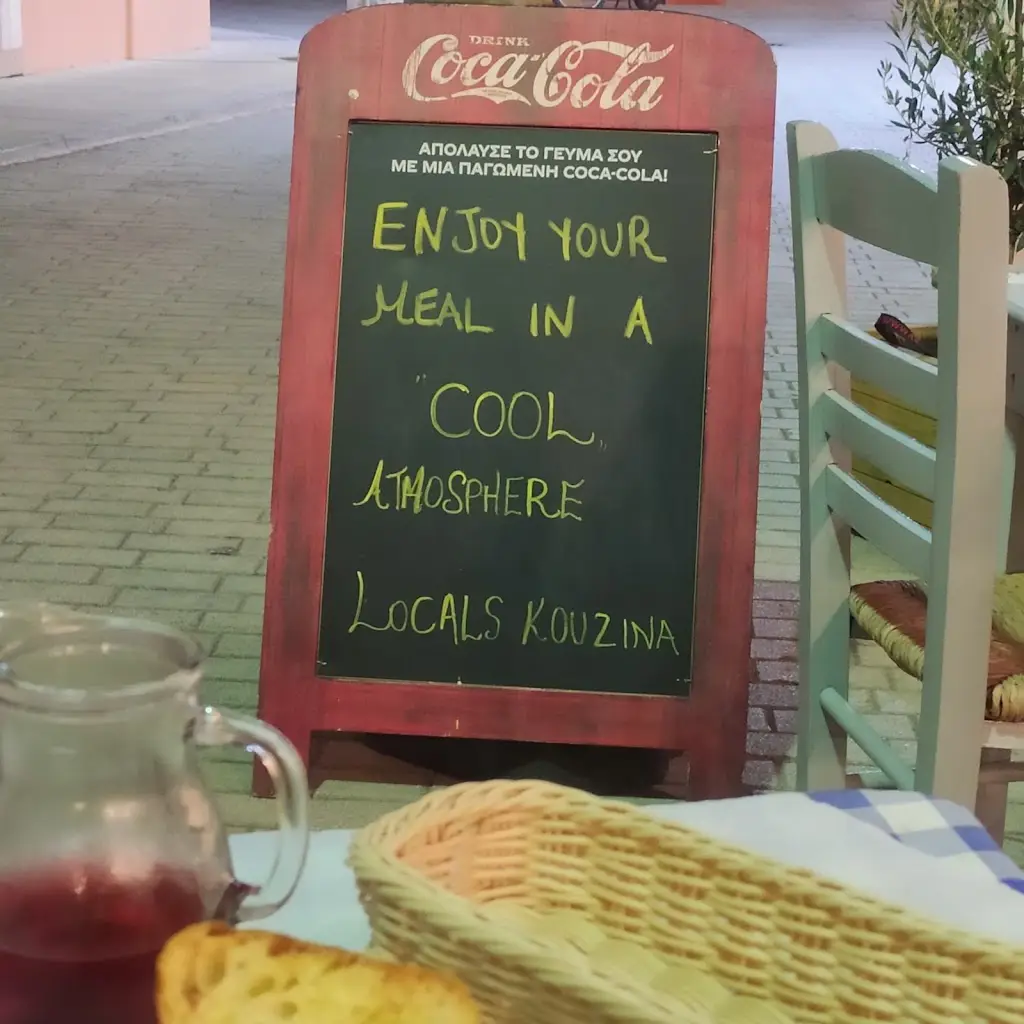 DRINK
Coca-Cola
ΑΠΟΛΑΥΣΕ ΤΟ ΓΕΥΜΑ ΣΟΥ
ΜΕ ΜΙΑ ΠΑΓΩΜΕΝΗ COCA-COLA!
ENJOY YOUR
MEAL IN A
"COOL"
ATMOSPHERE
LOCALS KOUZINA